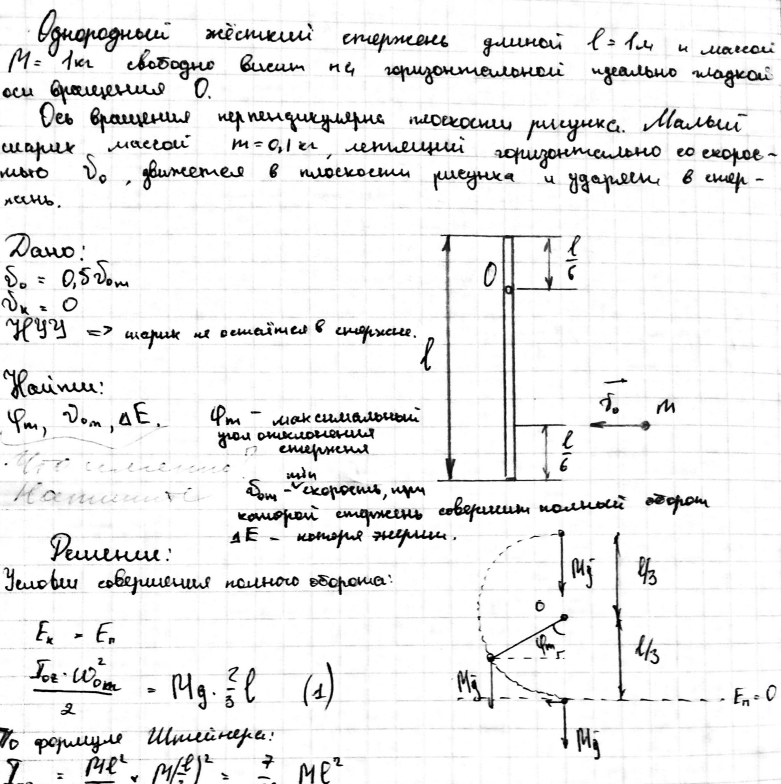 Однородный жёсткий стержень длиной l = 1м и массой
M = 1кг свободно висит на горизонтальной идеально гладкой
оси вращения O.
Ось вращения перпендикулярна плоскости рисунка. Малый
шарик массой m = 0,1 кг, летящий горизонтально со скорос-
тью v₀, движется в плоскости рисунка и ударяет в стер-
жень.
Дано:
v₀ = 0,5v₀ₘ
vₖ = 0
НУУ => шарик не остаётся в стержне.
Найти:
φₘ, v₀ₘ, ΔE.
φₘ – максимальный
угол отклонения
стержня
min
v₀ₘ – скорость, при
которой стержень совершит полный оборот
ΔE – потеря энергии.
O
l/6
l
v₀
m
l/6
Решение:
Условие совершения полного оборота:
Eₖ = Eₙ
(I₀z · ω₀ₘ²)/2 = Mg · 2/3 l (1)
По формуле Штейнера:
= Ml² M(l )² = 7 Ml²
Mg
l/3
O
φₘ
l/3
Mg
Eₙ = 0
Mg